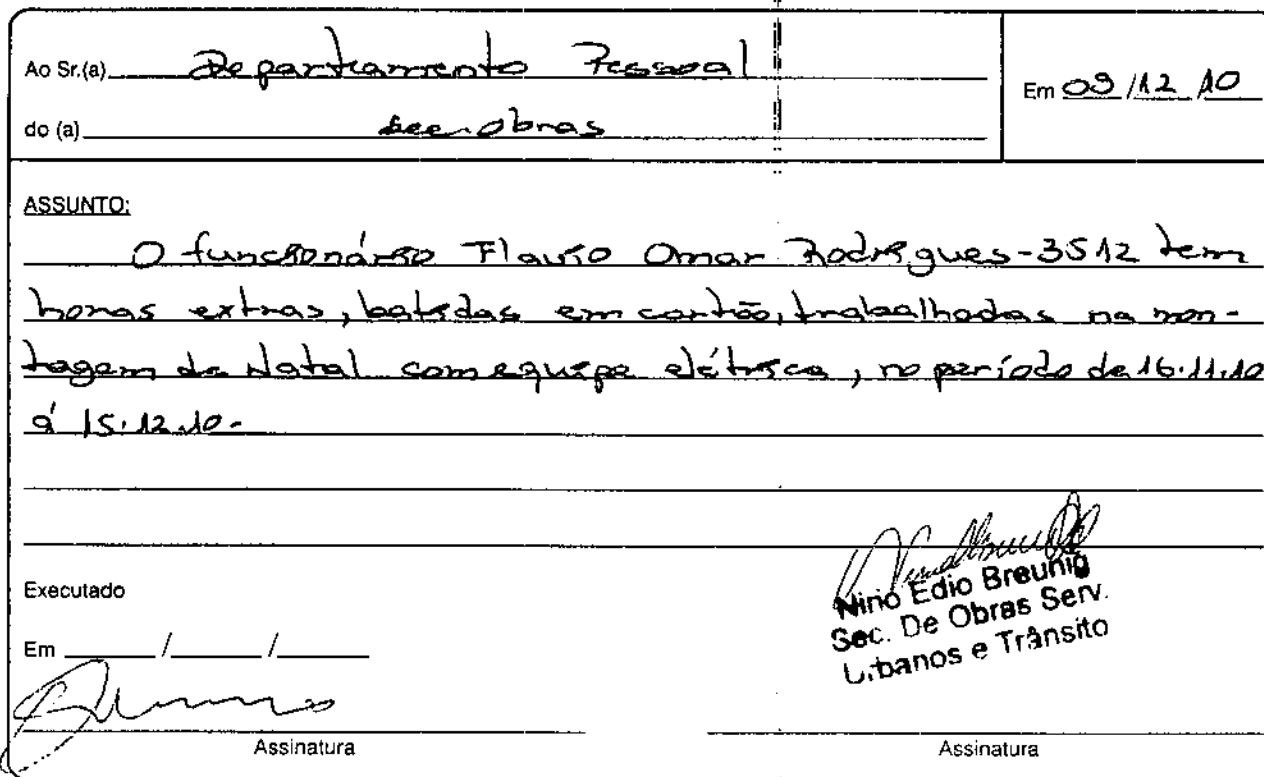 Ao Sr.(a) Departamento Pessoal
Em 09/12/10
do (a) Sec. Obras
ASSUNTO:
O funcionário Flavio Omar Rodrigues-3512 tem
horas extras, batidas em cartão, trabalhadas na mon-
tagem de Natal com equipe elétrica, no período de 16.11.10
á 15.12.10.
Executado
Em / /
Nirio Edio Breunig
Sec. De Obras Serv.
Urbanos e Trânsito
Assinatura
Assinatura